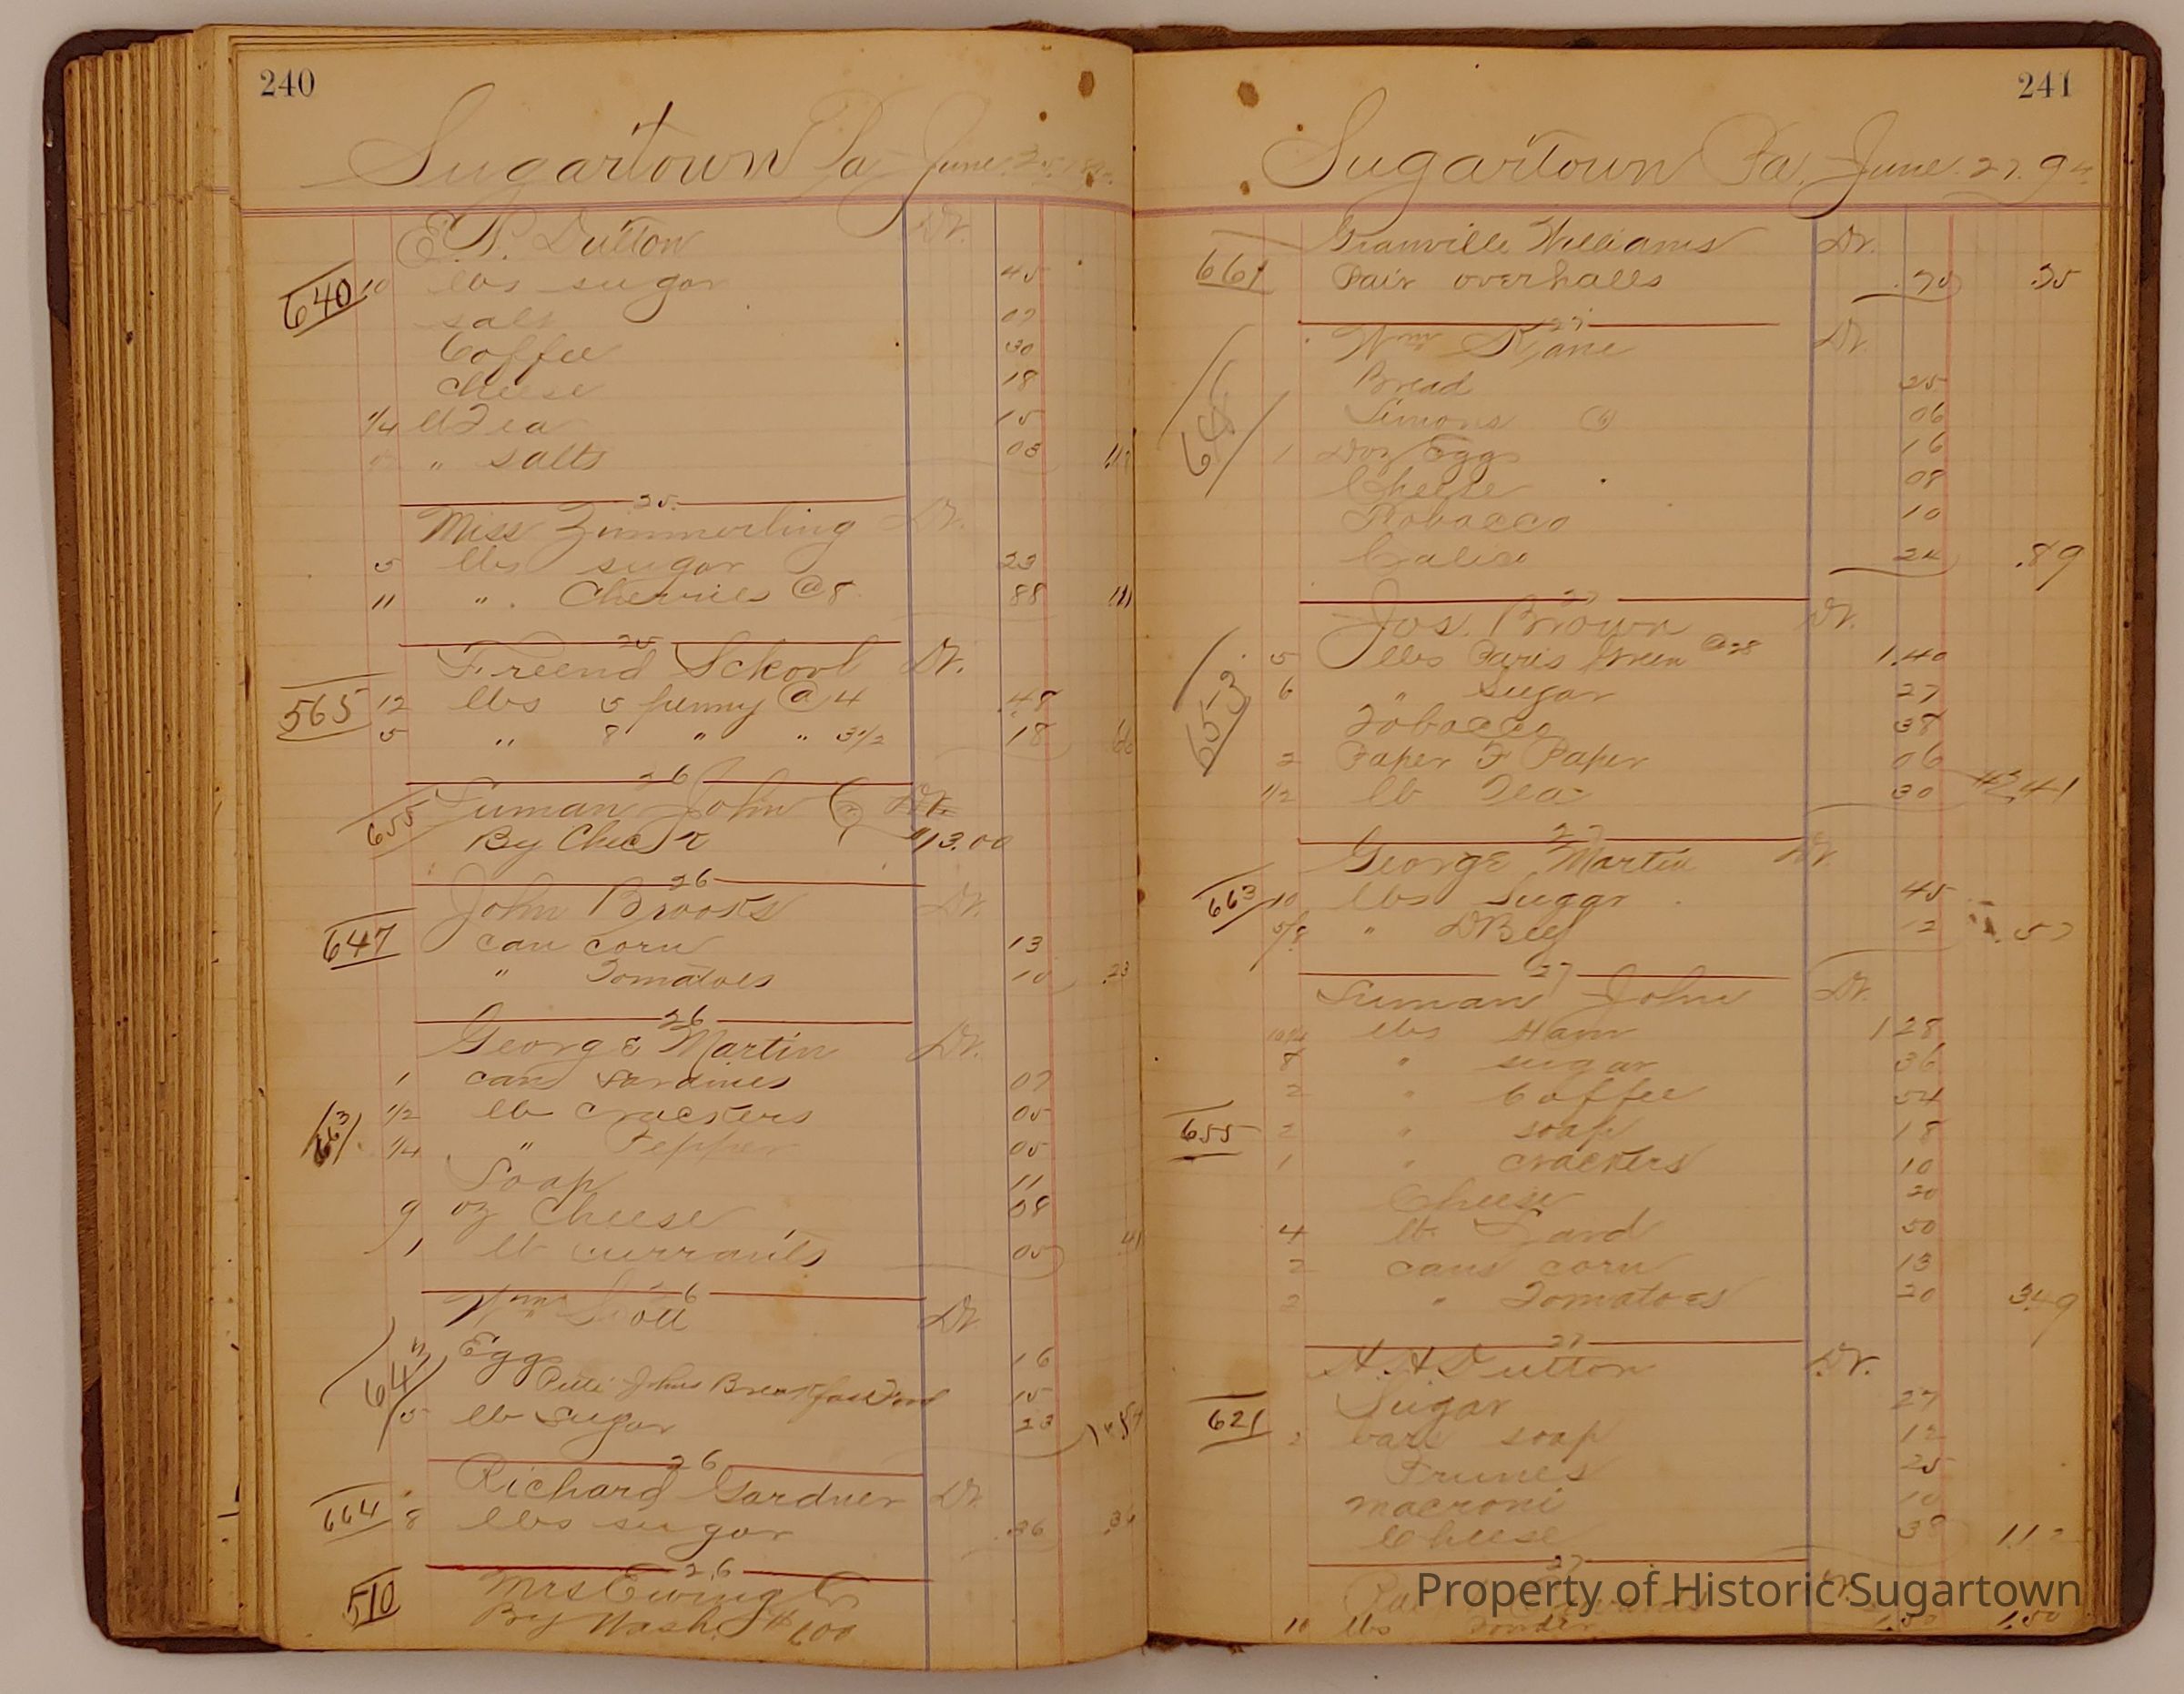 240
Sugartown Pa June 25
E. P. Dutton Dr.
640 10 lbs sugar 45
salt 07
Coffee 30
Cheese 18
1/4 lb Tea 15
" salts 03
25
Miss Zimmerling Dr.
5 lbs sugar 23
11 " Cherries @ 8 88 111
25
Freend School Dr.
565 12 lbs 5 penny @ 4 .48
5 " 8 " " 3 1/2 18 66
26
655 Suman John Cr Dr.
By Check $13.00
26
John Brooks Dr.
647 can corn 13
" Tomatoes 10 .23
26
George Martin Dr.
1 can sardines 07
663 1/2 lb crackers 05
1/4 " Pepper 05
Soap 11
9 oz Cheese 08
1 lb currants 05 41
26
Wm Scott Dr
Eggs 16
Petti Johns Breakfast Food 15
5 lb sugar 23
26
Richard Gardner Dr
664 8 lbs sugar .36 .36
26
510 Mrs Ewing Cr
By Wash. $ 600
241
Sugartown Pa. June 27. 94
Granville Williams Dr.
661 Pair overhalls .75 .75
27
Wm Kane Dr.
Bread 25
Limons 06
1 Doz Eggs 16
Cheese 08
Tobacco 10
Calico 24 .89
27
Jos. Brown Dr.
653 5 lbs Paris Green @ 28 1.40
6 " Sugar 27
Tobacco 38
2 Paper F Paper 06
1/2 lb Tea 30 2.41
27
George Martin Dr.
663 10 lbs Sugar 45
" D Beef 12 .57
27
Suman John Dr.
lbs Ham 128
8 " sugar 36
2 " Coffee 54
655 2 " soap 18
1 " crackers 10
Cheese 20
4 lb Lard 50
2 cans corn 13
2 " Tomatoes 20 3.49
27
H. H. Dutton Dr.
Sugar 27
621 2 bars soap 12
Prunes 25
macroni 10
Cheese 38 1.12
27
10 lbs 1.50 1.50
Property of Historic Sugartown